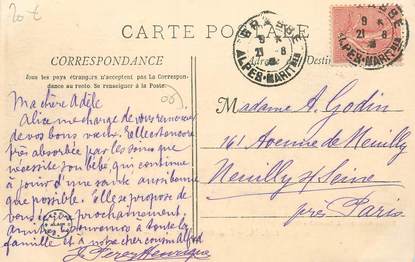 20 €
CARTE POSTALE
GRASSE
9 4
21 -8
ALPES-MARITMES
GRASSE
9
21 8
ALPES-MARITMES
CORRESPONDANCE
Tous les pays étrangers n'acceptent pas la Correspon-
dance au recto. Se renseigner à la Poste.
(06)
Ma chère Adèle
Alice me charge de vous remercier
de vos bons vœux. Elle est encore
très absorbée par les soins que
nécessite son bébé qui continue
à jouir d'une santé aussi bonne
que possible. Elle se propose de
vous prochainement,
à toute la
famille et à notre cher cousin
Madame A. Godin
161 Avenue de Neuilly
Neuilly s/ Seine
près Paris